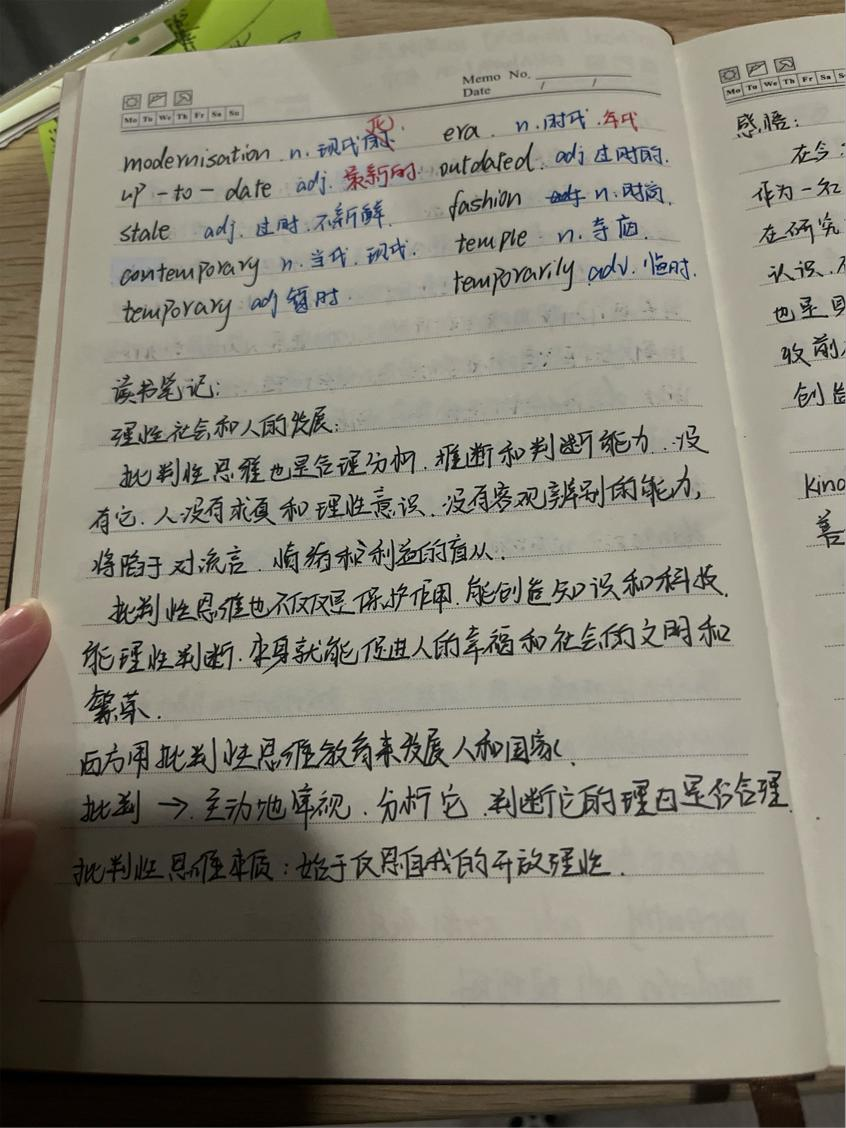 Memo No.
Date / /
Mo Tu We Th Fr Sa Su
modernisation n. 现代化
era n. 时代. 年代
up-to-date adj. 最新的
outdated. adj 过时的.
stale adj. 过时. 不新鲜.
fashion n. 时尚.
contemporary n. 当代. 现代.
temple n. 寺庙.
temporary adj 暂时.
temporarily adv. 临时.
读书笔记:
理性社会和人的发展:
批判性思维也是合理分析. 推断和判断能力. 没
有它. 人没有求真和理性意识. 没有客观辨别的能力,
将陷于对流言. 情绪和利益的盲从.
批判性思维也不仅仅是保护作用. 能创造知识和科技.
能理性判断. 本身就能促进人的幸福和社会的文明和
繁荣.
西方用批判性思维教育来发展人和国家.
批判 → 主动地审视. 分析它. 判断它的理由是否合理.
批判性思维本质: 始于反思自我的开放理性.
Mo Tu We Th Fr Sa
感悟:
在今
作为一名
在研究
认识.
也是
收前
创造
Kind
善